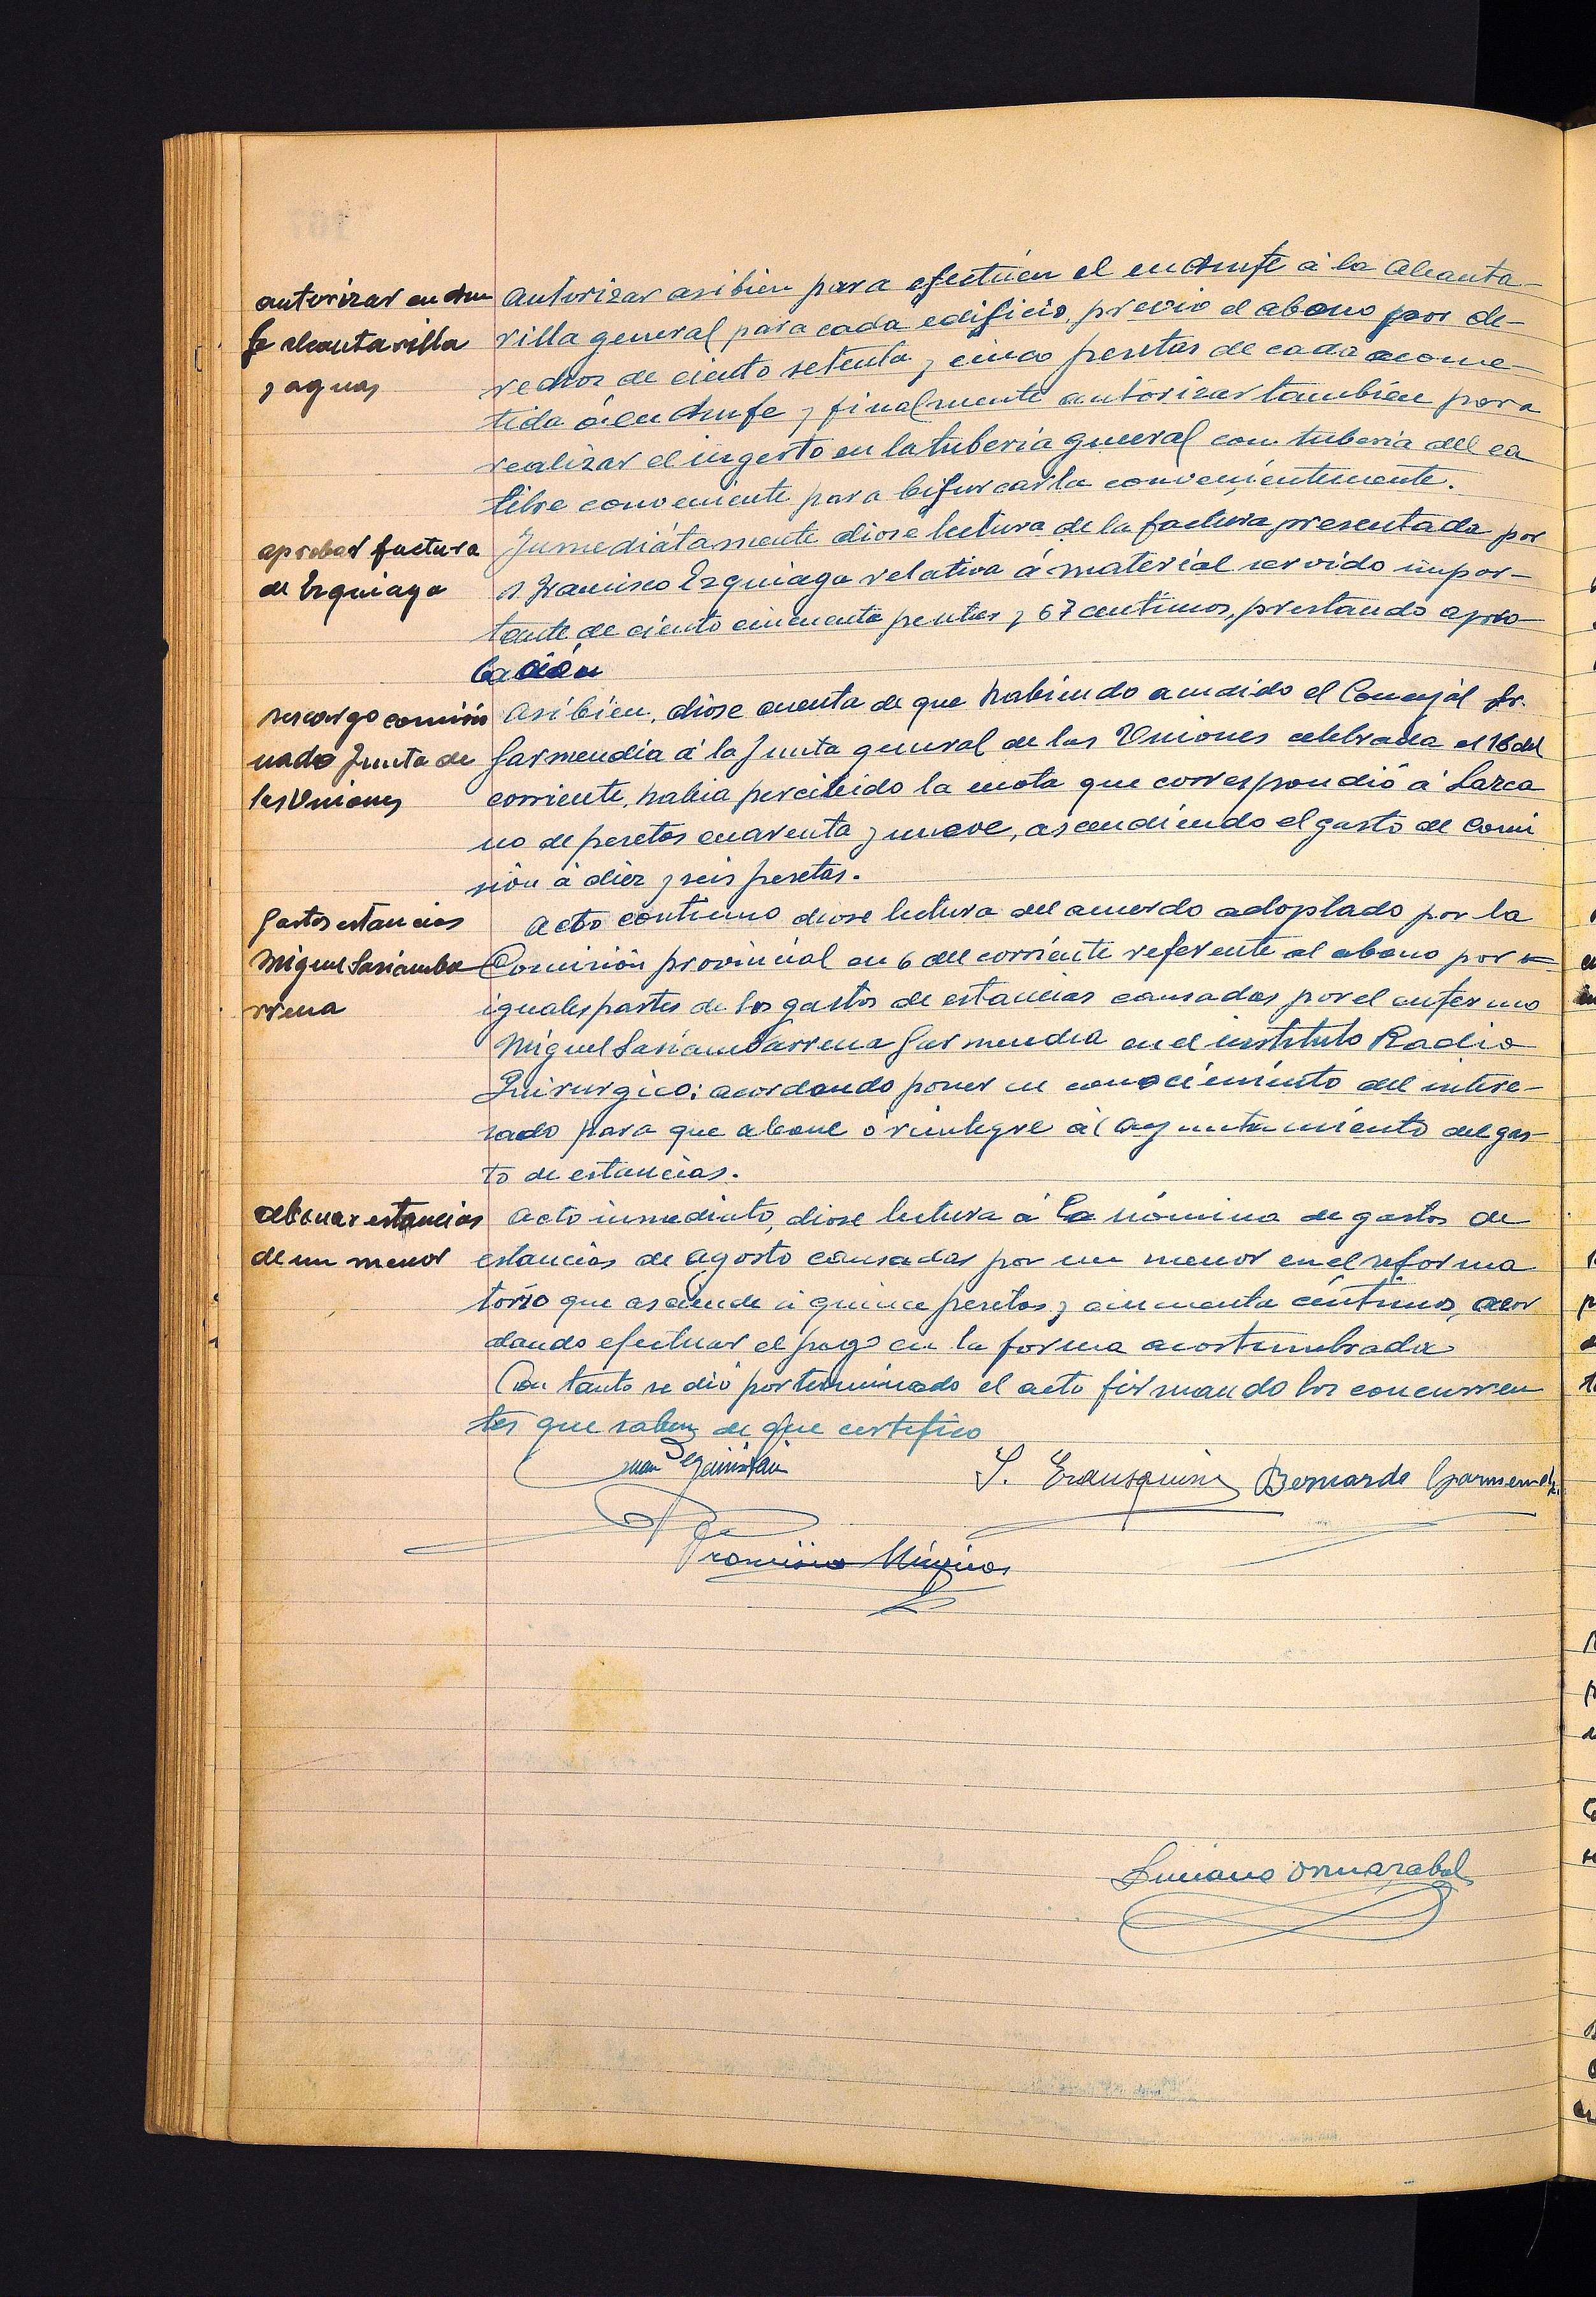 autorizar enchu
fe alcantarilla
y aguas
Autorizar asibien para efectúen el enchufe á la alcanta-
rilla general para cada edificio, previo el abono por de-
rechos de ciento setenta y cinco pesetas de cada acome-
tida ó enchufe y finalmente autorizar tambien para
realizar el ingerto en la tuberia general con tuberia del ca
libre conveniente para bifurcarla convenientemente.
aprobar factura
de Ezquiaga
Inmediátamente diose lectura de la factura presentada por
Francisco Ezquiaga relativa á material servido impor-
tante de ciento cincuenta pesetas y 67 centimos, prestando apro-
bación
comisio
nado Junta de
las Uniones
Asibien, diose cuenta de que habiendo acudido el Concejal Sr.
Garmendia á la Junta general de las Uniones celebrada el 16 del
corriente, habia percibido la cuota que correspondió á Lazca
no de pesetas cuarenta y nueve, ascendiendo el gasto de comi
sión á diez y seis pesetas.
Gastos estancias
Miguel Sasiamba
rrena
Acto continuo diose lectura del acuerdo adoptado por la
Comisión provincial en 6 del corriente referente al abono por
iguales partes de los gastos de estancias causadas por el enfermo
Miguel Sasiambarrena Garmendia en el instituto Radio
Quirurgico; acordando poner en conocimiento del intere-
sado para que abone ó reintegre al Ayuntamiento del gas-
to de estancias.
abonar estancias
de un menor
Acto inmediato, diose lectura á la nómina de gastos de
estancias de Agosto causadas por un menor en el reforma
torio que asciende á quince pesetas y cincuenta céntimos, acor
dando efectuar el pago en la forma acostumbrada
Con tanto se dió por terminado el acto firmando los concurren
tes que saben de que certifico
Juan
S. Erausquin Bernardo Garmendia
Francisco Múgica
Luciano Ormazabal